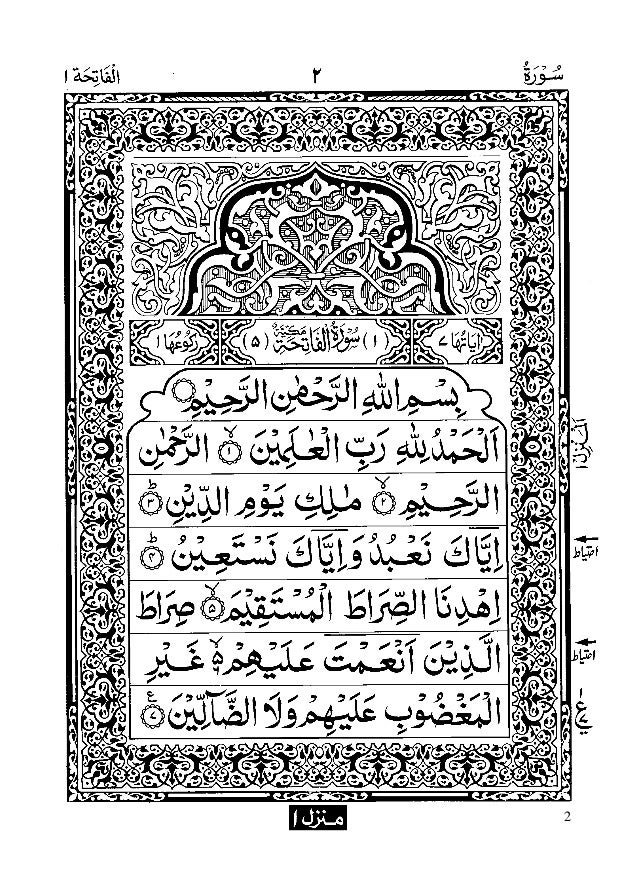 سُوْرَةُ ٢ اَلْفَاتِحَة ١
اٰيَاتُهَا ٧ (١) سُوْرَةُ الْفَاتِحَةِ مَكِّيَّةٌ (٥) رُكُوْعُهَا ١
بِسْمِ اللّٰهِ الرَّحْمٰنِ الرَّحِيْمِ
اَلْحَمْدُ لِلّٰهِ رَبِّ الْعٰلَمِيْنَ ۙ﴿١﴾ الرَّحْمٰنِ
الرَّحِيْمِ ۙ﴿٢﴾ مٰلِكِ يَوْمِ الدِّيْنِ ؕ﴿٣﴾
اِيَّاكَ نَعْبُدُ وَاِيَّاكَ نَسْتَعِيْنُ ؕ﴿٤﴾
اِهْدِنَا الصِّرَاطَ الْمُسْتَقِيْمَ ۙ﴿٥﴾ صِرَاطَ
الَّذِيْنَ اَنْعَمْتَ عَلَيْهِمْ ۙ۬ۥ غَيْرِ
الْمَغْضُوْبِ عَلَيْهِمْ وَلَا الضَّآلِّيْنَ ﴿٧﴾ ع
المنزل ١
احتياط
احتياط
ع
منزل ١
2